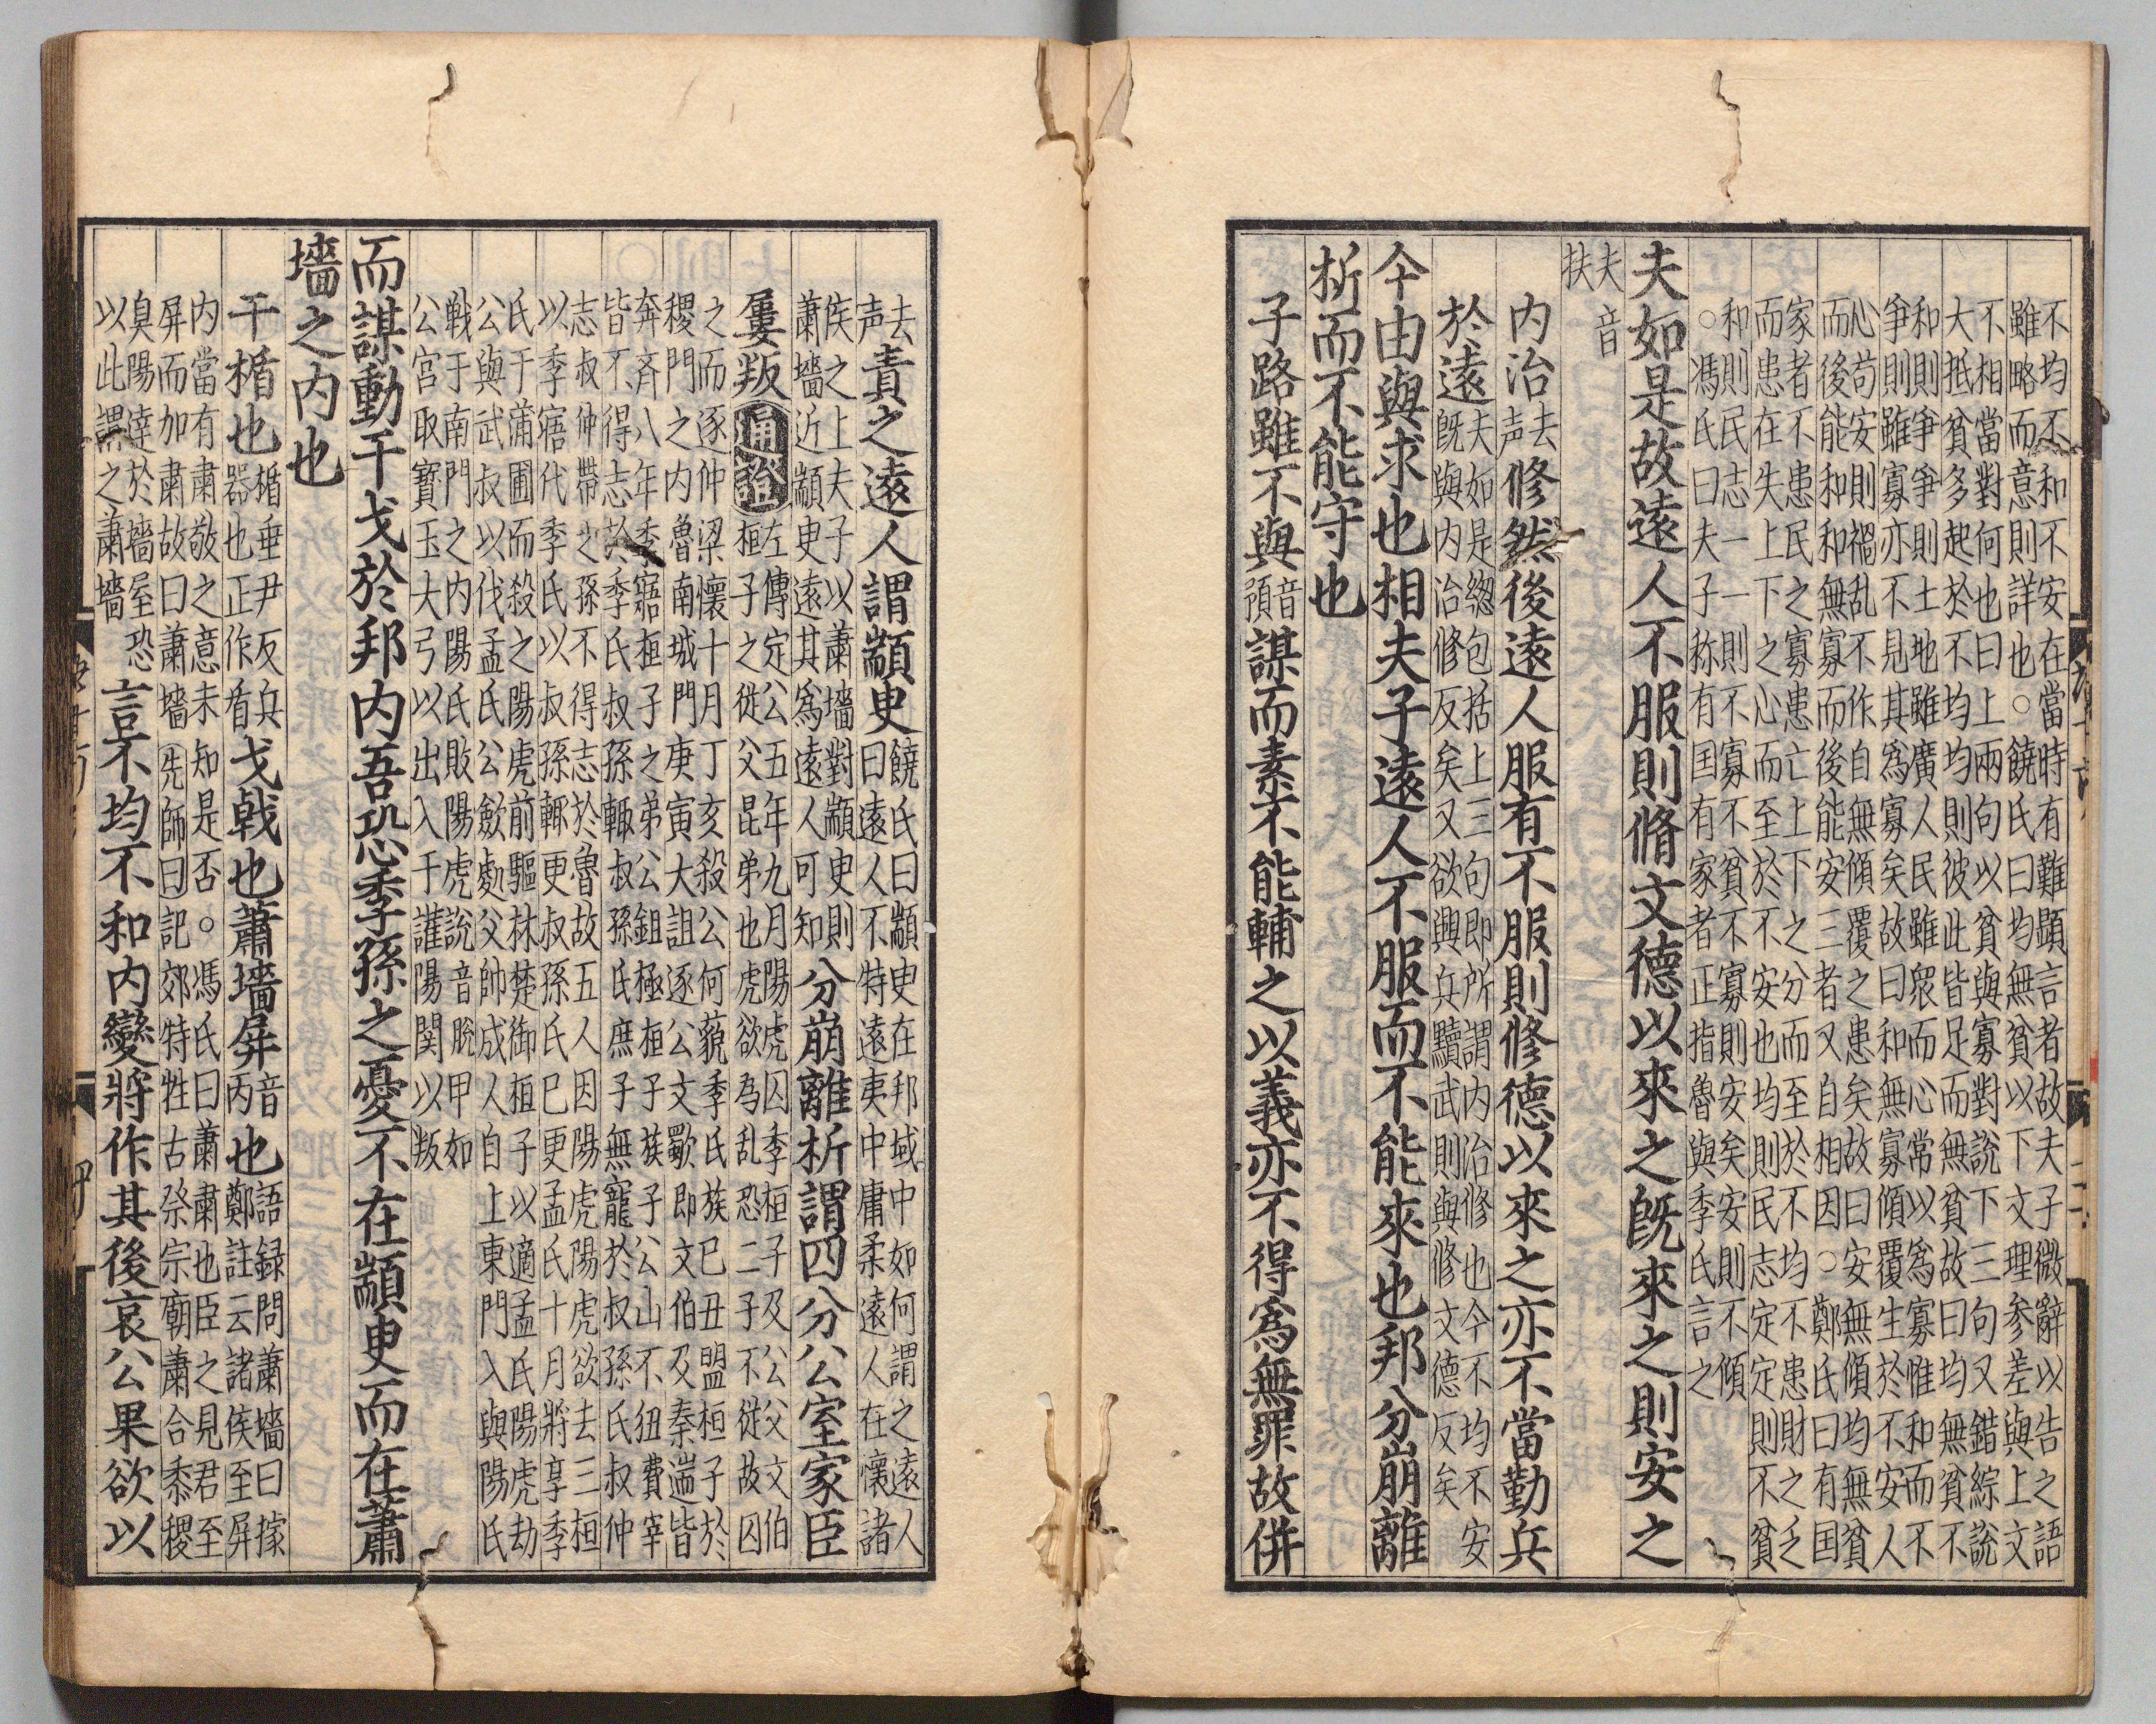 不均不和不安在當時有難顯言者故夫子微辭以告之語
雖略而意則詳也○饒氏曰均無貧以下文理參差與上文
不相當對何也曰上兩句以貧與寡對說下三句又錯綜說
大抵貧多起於不均均則彼此皆足而無貧故曰均無貧不
和則爭爭則土地雖廣人民雖衆而心常以爲寡惟和而不
爭則雖寡亦不見其爲寡矣故曰和無寡傾覆生於不安人
心苟安則禍乱不作自無傾覆之患矣故曰安無傾均無貧
而後能和和無寡而後能安三者又自相因○鄭氏曰有国
家者不患民之寡患亡上下之分而至於不均不患財之乏
而患在失上下之心而至於不安也均則民志定定則不貧
和則民志一一則不寡不貧不寡則安矣安則不傾
○馮氏曰夫子称有国有家者正指魯與季氏言之
夫如是故遠人不服則脩文德以來之既來之則安之
夫音
扶
内治去声修然後遠人服有不服則修德以來之亦不當勤兵
於遠夫如是緫包括上三句即所謂内治修也今不均不安
既與内治修反矣又欲興兵黷武則與修文德反矣
今由與求也相夫子遠人不服而不能來也邦分崩離
析而不能守也
子路雖不與音預謀而素不能輔之以義亦不得爲無罪故併
去声責之遠人謂顓臾饒氏曰顓臾在邦域中如何謂之遠人
曰遠人不特遠夷中庸柔遠人在懷諸
侯之上夫子以蕭墻對顓臾則
蕭墻近顓臾遠其爲遠人可知分崩離析謂四分公室家臣
屢叛通證左傳定公五年九月陽虎囚季桓子及公父文伯
桓子之從父昆弟也虎欲為乱恐二子不從故囚
之而逐仲梁懷十月丁亥殺公何藐季氏族已丑盟桓子於
稷門之内魯南城門庚寅大詛逐公文歜即文伯及秦遄皆
奔齐八年季寤桓子之弟公鉏極桓子族子公山不狃費宰
皆不得志於季氏叔孫輒叔孫氏庶子無寵於叔孫氏叔仲
志叔仲帶之孫不得志於魯故五人因陽虎陽虎欲去三桓
以季寤代季氏以叔孫輒更叔孫氏巳更孟氏十月將享季
氏于蒲圃而殺之陽虎前驅林楚御桓子以適孟氏陽虎劫
公與武叔以伐孟氏公斂處父帥成人自上東門入與陽氏
戦于南門之内陽氏敗陽虎說音脫甲如
公宮取寳玉大弓以出入于讙陽関以叛
而謀動干戈於邦内吾恐季孫之憂不在顓臾而在蕭
墻之内也
干楯也楯垂尹反兵器也正作盾戈戟也蕭墻屏音丙也語録問蕭墻曰據
鄭註云諸侯至屏
内當有肅敬之意未知是否○馮氏曰蕭肅也臣之見君至
屏而加肅故曰蕭墻先師曰記郊特牲古祭宗廟蕭合黍稷
臭陽達於墻屋恐
以此謂之蕭墻言不均不和内變將作其後哀公果欲以